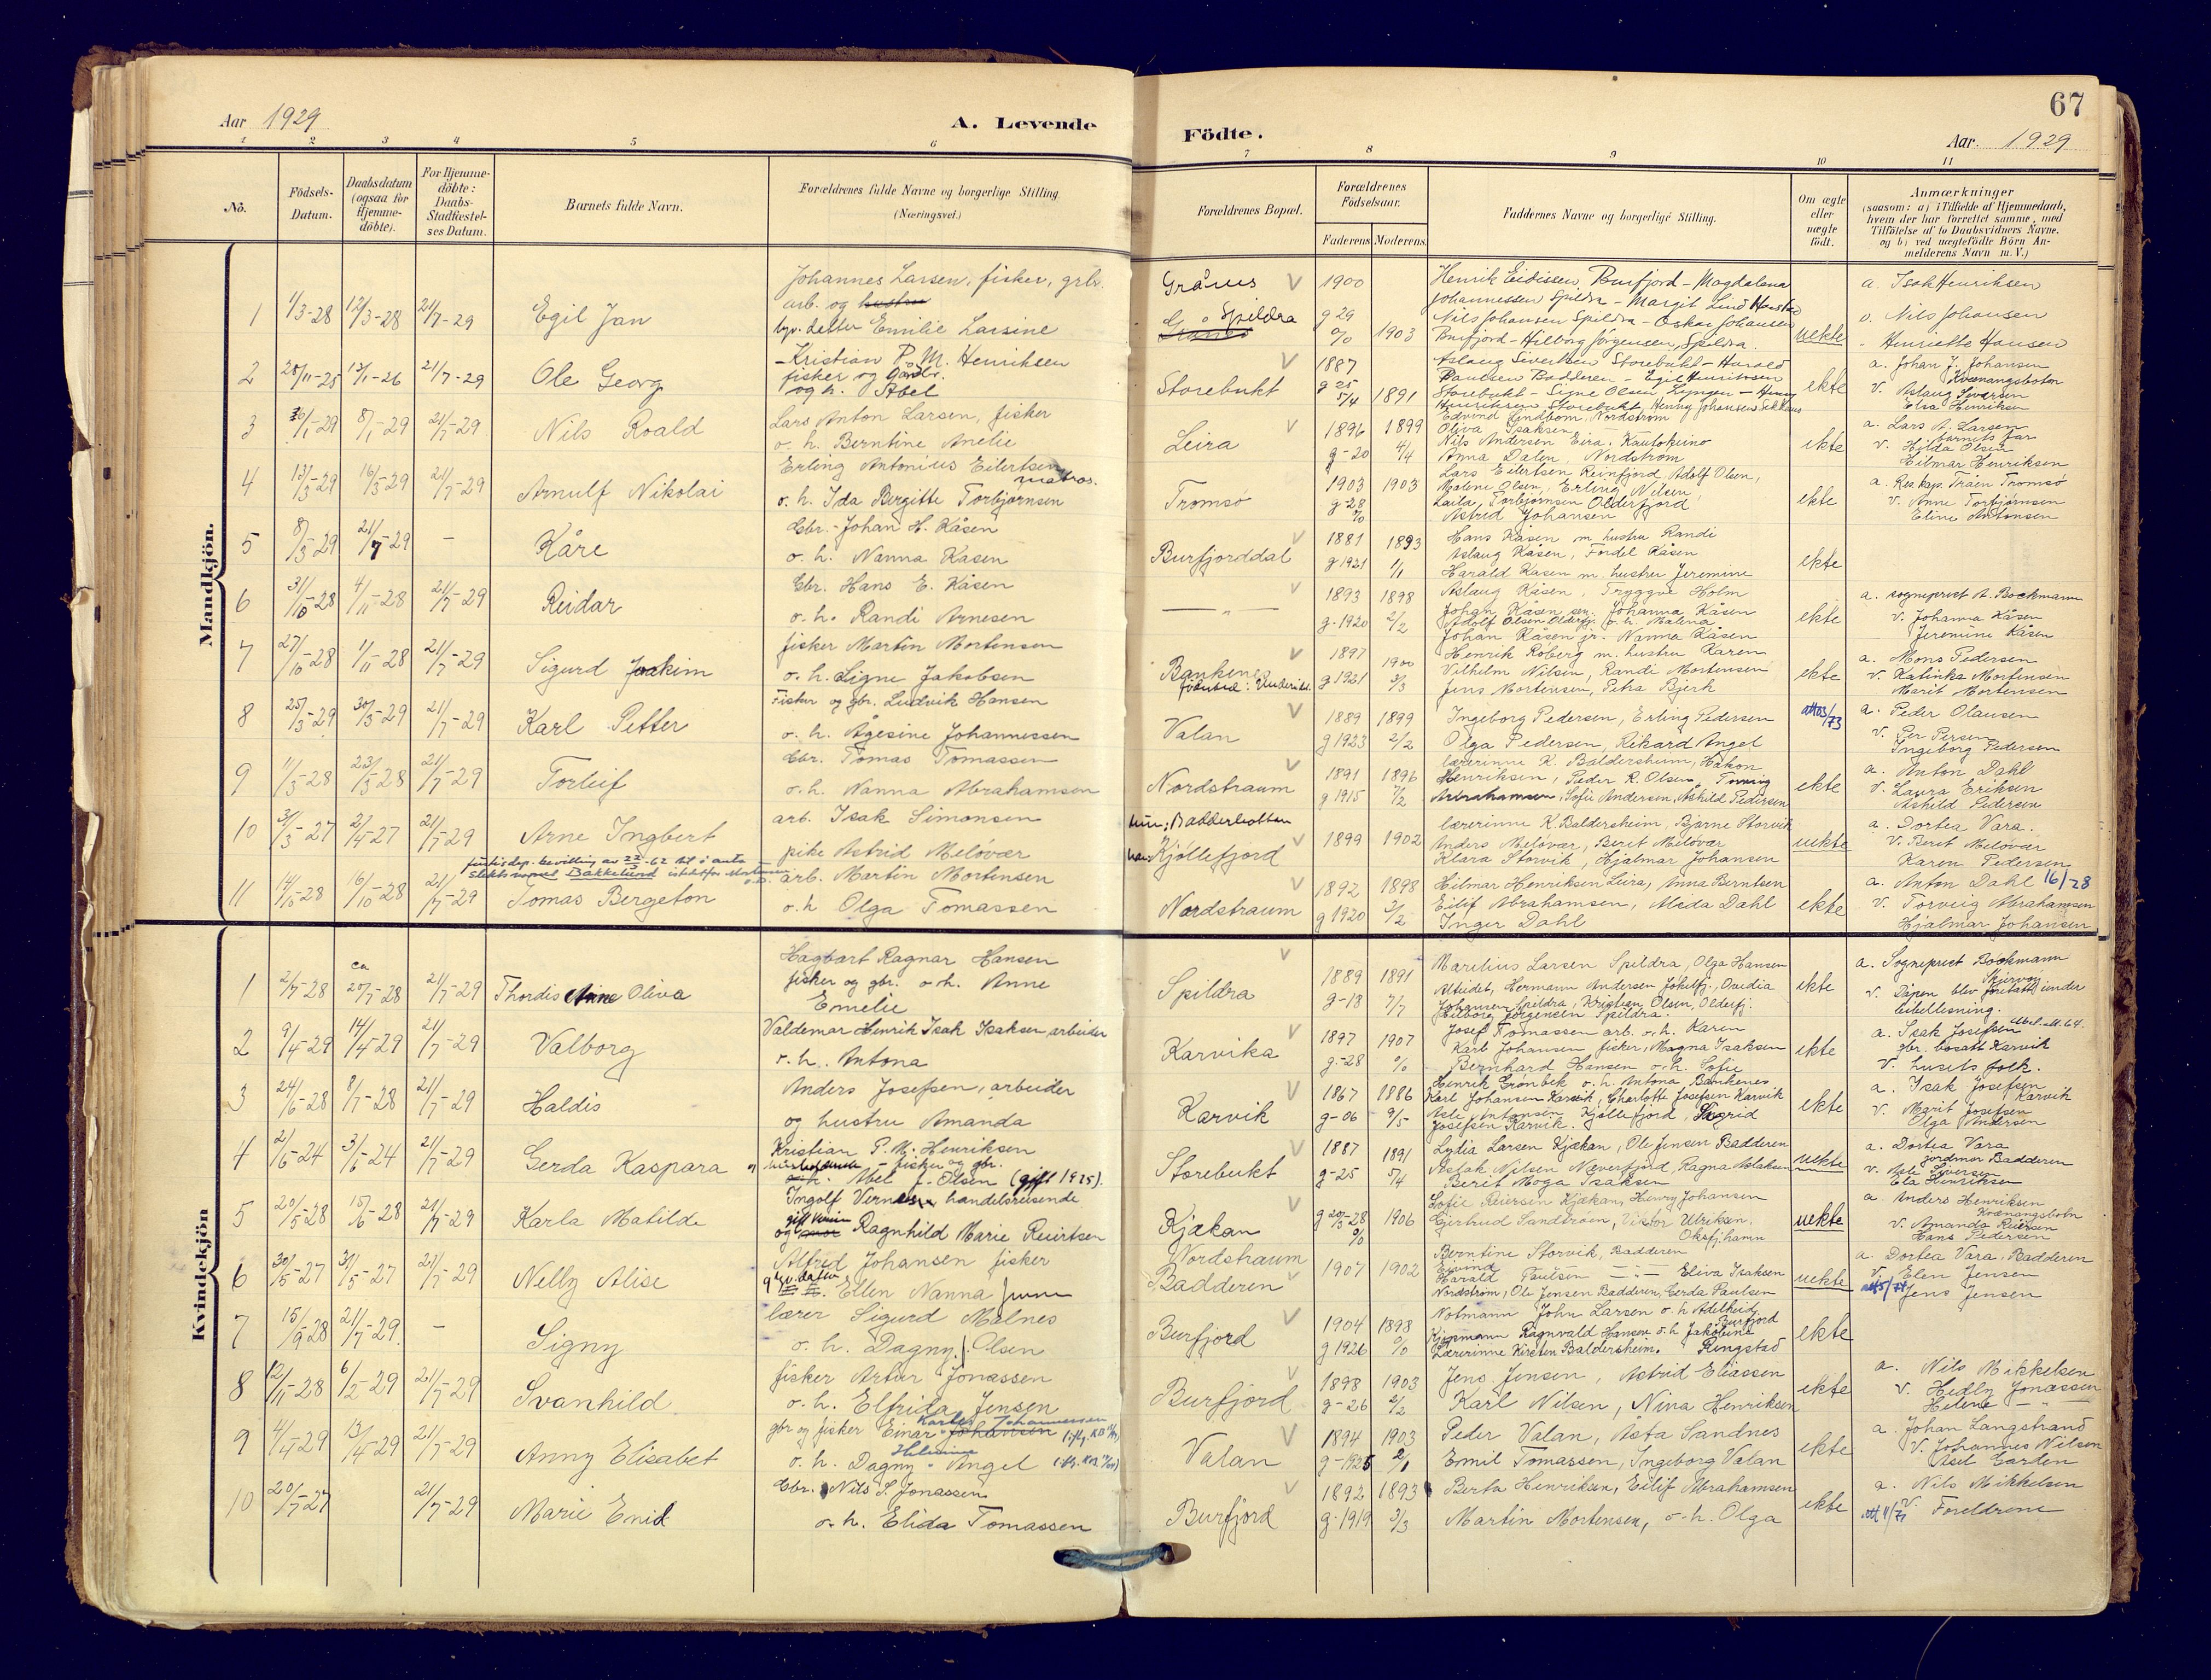 Aar 1929
A. Levende
Födte.
67
Aar. 1929
1 2 3 4 5 6 7 8 9 10 11
No.
Födsels-
Datum.
Daabsdatum
(ogsaa for
Hjemme-
döbte).
For Hjemme-
döbte:
Daabs-
Stadfæstel-
ses Datum.
Barnets fulde Navn.
Forældrenes fulde Navne og borgerlige Stilling
(Næringsvei.)
Forældrenes Bopæl.
Forældrenes
Födselsaar.
Faderens
Moderens
Faddernes Navne og borgerlige Stilling.
Om ægte
eller
uægte
födt.
Anmærkninger
(saasom: a) i Tilfælde af Hjemmedaab,
hvem der har forrettet samme, med
Tilföielse af to Daabsvidners Navne.
og b) ved uægtefödte Börn An-
melderens Navn m. V.)
Mandkjön.
1 1/3-28 12/3-28 21/7-29 Egil Jan
Johannes Larsen, fisker, grbr.
arb. og hustru
Emilie Larsine
Spildra
1900
g 29
1903
Henrik Eidissen, Burfjord - Magdalena
Johannessen Spildra - Margit Lind
Nils Johansen Spildra - Oskar Johansen
Burfjord - Hilborg Jörgensen, Spildra.
uekte
a. Isak Henriksen
v. Nils Johansen
- Henriette Hansen
2 21/7-29 Ole Georg
- Kristian P. M. Henriksen
fisker og Gårdbr.
og h. Abel
Storebukt
1887 1891
g 25 5/4
Aslaug Sivertsen Storebukt - Harald
Paulsen Badderen - Egil Henriksen
Storebukt - Signe Olsen, Lyngen - Henry
Henriksen Storebukt, Henny Johansen
ekte
a. Johan J. Johansen
Kvænangsbotn
v. Aslaug Siversen
Elia Henriksen
3 8/1-29 21/7-29 Nils Roald
Lars Anton Larsen, fisker
o. h. Berntine Anelie
Leira
1896 1899
g-20 4/4
Edvind Lindbom, Nordstrøm
Oliva Isaksen
Nils Andersen Eira. Kautokeino
Anna Dalen, Nordstrøm
ekte
a. Lars A. Larsen
barnets far
v. Hilda Olsen
Hilmar Henriksen
4 13/3-29 16/3-29 21/7-29 Arnulf Nikolai
Erling Antonius Eilertsen
matros.
o. h. Ida Birgitte Torbjørnsen
Tromsø
1903 1903
g-28
Lars Eilertsen Reinfjord, Adolf Olsen,
Malene Olsen, Erling Nilsen,
Laila Torbjørnsen Olderfjord
Astrid Johansen
ekte
a. Res. kap. Træen Tromsø
v. Anne Torbjörnsen
Eline Antonsen
5 8/3-29 21/7-29 - Kåre
Gbr. Johan H. Kåsen
o. h. Nanna Kåsen
Burfjorddal
1881 1893
g 1921 1/1
Hans Kåsen m. hustru Randi
Aslaug Kåsen, Fordel Kåsen
Harald Kåsen m. hustru Jeremine
ekte
6 31/10-28 4/11-28 21/7-29 Reidar
Gbr. Hans E. Kåsen
o. h. Randi Arnesen
— " —
1893 1898
g. 1920 2/2
Aslaug Kåsen, Tryggve Holm
Johan Kåsen sen. Johanna Kåsen
Adolf Olsen Olderfj. o. h. Malena
Johan Kåsen jr. Nanna Kåsen
ekte
a. sogneprest A. Bockmann
v. Johanna Kåsen
Jeremine Kåsen
7 27/10-28 1/11-28 21/7-29 Sigurd Joakim
fisker Martin Mortensen
o. h. Signe Jakobsen
Bankenes
1897 1900
g 1921 3/3
Henrik Røberg m. hustru Karen
Vilhelm Nilsen, Randi Mortensen
Jens Mortensen, Petra Bjerk
ekte
a. Mons Pedersen
v. Katinka Mortensen
Marit Mortensen
8 25/3-29 30/3-29 21/7-29 Karl Petter
Fisker og gbr. Ludvik Hansen
o. h. Ågesine Johannessen
Valan
1889 1899
g 1923 2/2
Ingeborg Pedersen, Erling Pedersen
Olga Pedersen, Rikard Angel
a. Peder Olausen
v. Per Persen
Ingeborg Pedersen
9 11/3-28 23/3-28 21/7-29 Torleif
Gbr. Tomas Tomassen
o. h. Nanna Abrahamsen
Nordstraum
1891 1896
g 1915 7/2
lærerinne K. Baldersheim, Håkon
Henriksen, Peder R. Olsen, Torveig
Abrahamsen, Sofie Andersen, Ashild Pedersen
ekte
a. Anton Dahl
v. Laura Eriksen
Ashild Pedersen
10 31/3-27 2/4-27 21/5-29 Arne Ingbert
arb. Isak Simonsen
pike Astrid Meløvær
hun: Badderholtan
han: Kjøllefjord
1899 1902
lærerinne K. Baldersheim, Bjarne Storvik
Anders Meløvær, Berit Meløvær
Klara Storvik, Hjalmar Johansen
uekte
a. Dortea Vara.
v. Berit Meløvær
Karen Pedersen
slektsnavnet Bakkelund istedetfor Mortensen
11 14/10-28 16/10-28 21/7-29 Tomas Bergeton
arb. Martin Mortensen
o. h. Olga Tomassen
Nordstraum
1892 1898
g 1920 2/2
Hilmar Henriksen Leira, Anna Berntsen
Eilif Abrahamsen, Meda Dahl
Inger Dahl
ekte
a. Anton Dahl 16/-28
v. Torveig Abrahamsen
Hjalmar Johansen
Kvindekjön
1 2/7-28 ca 20/7-28 21/7-29 Thordis Anne Oliva
Hagbart Ragnar Hansen
fisker og gbr. o. h. Anne
Emelie
Spildra
1889 1891
g-18 7/7
Marelius Larsen Spildra, Olga Hansen
Alteidet, Hermann Andersen Jökelfj., Ovidia
Johansen Spildra, Kristian Olsen, Olderfj.
Hilborg Jørgensen Spildra.
ekte
a. Sogneprest Bockmann
Skjervøy
v. Dåpen blev foretatt under
bibellesning.
2 9/4-29 14/4-29 21/7-29 Valborg
Valdemar Henrik Isak Isaksen, arbeider
o. h. Antona
Karvika
1897 1907
g.-28
Josef Tomassen arb. o. h. Karen
Karl Johansen fisker, Magna Isaksen
Bernhard Hansen o. h. Sofie
Henrik Grønbek o. h. Antona, Bankenes
ekte
a. Isak Josefsen
gbr. bosatt Karvik
v. husets folk.
3 24/6-28 8/7-28 21/7-29 Haldis
Anders Josefsen, arbeider
og hustru Amanda
Karvik
1867 1886
g-06 9/5
Karl Johansen Karvik, Charlotte Josefsen Karvik
Asle Antonsen Kjøllefjord, Sigrid
Josefsen Karvik.
ekte
a. Isak Josefsen
Karvik
v. Marit Josefsen
Olga Andersen
4 2/6-24 3/6-24 21/7-29 Gerda Kaspara
Kristian P. M. Henriksen
fisker og gbr.
Abel f. Olsen (gift 1925).
Storebukt
1887 1891
g-25 5/4
Lydia Larsen Kjækan, Ole Jensen Badderen
Aslak Nilsen Næverfjord, Ragna Aslaksen
Berit Moga Isaksen
uekte
a. Dortea Vara
jordmor Badderen
v. Asle Siversen
Ela Henriksen
5 20/5-28 15/6-28 21/7-29 Karla Matilde
Ingolf handelsreisende
og Ragnhild Marie Reiertsen
Kjækan
1906
Sofie Reiersen Kjækan, Henry Johansen
Gjertrud Sandbråen, Viktor Ulriksen.
Oksfj.hamn
uekte
a. Anders Henriksen
Kvænangsbotn
v. Amanda Reiersen
Hans Pedersen
6 30/5-27 31/5-27 21/7-29 Nelly Alise
Alfred Johansen fisker
Ellen Nanna Jensen
Nordstraum
Badderen
1907 1902
Berntine Storvik, Badderen
Eivind
Harald Paulsen — " — Eliva Isaksen
Nordstrøm, Ole Jensen Badderen, Gerda Paulsen
uekte
a. Dortea Vara. Badderen
v. Elen Jensen
Jens Jensen
7 15/9-28 21/7-29 - Signy
lærer Sigurd Malnes
o. h. Dagny f. Olsen
Burfjord
1904 1898
g 1926
Notmann John Larsen o. h. Adelheid,
Burfjord
Kjøpmann Ragnvald Hansen o. h. Jakobine
Lærerinne Kirsten Baldersheim. Ringstad
ekte
8 12/11-28 6/2-29 21/7-29 Svanhild
fisker Artur Jonassen
o. h. Elfrida Jensen
Burfjord
1898 1903
g-26 2/2
Jens Jensen, Astrid Eliassen
Karl Nilsen, Nina Henriksen
ekte
a. Nils Mikkelsen
v. Hedly Jonassen
Helene — " —
9 4/4-29 13/4-29 21/7-29 Anny Elisabet
Karles Johannessen
gbr og fisker Einar Johansen
Helmine
o. h. Dagny Angel
Valan
1894 1903
g-1925 2/1
Peder Valan, Asta Sandnes
Emil Tomassen, Ingeborg Valan
ekte
a. Johan Langstrand
v. Johannes Nilsen
10 20/7-27 21/7-29 Marie Enid
Gbr. Nils S. Jonassen
o. h. Elida Tomassen
Burfjord
1892 1893
g. 1919 3/3
Berta Henriksen, Eilif Abrahamsen
Martin Mortensen, o. h. Olga
ekte
a. Nils Mikkelsen
v. Foreldrene